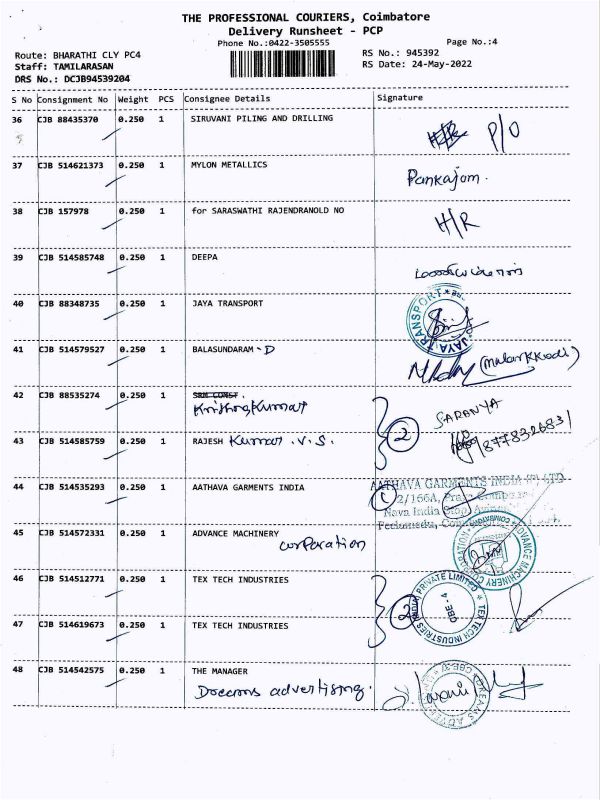 THE PROFESSIONAL COURIERS, Coimbatore
Delivery Runsheet - PCP
Phone No.:0422-3505555
Page No.:4
Route: BHARATHI CLY PC4
RS No.: 945392
Staff: TAMILARASAN
RS Date: 24-May-2022
DRS No.: DCJB94539204
S No Consignment No Weight PCS Consignee Details Signature
36 CJB 88435370 0.250 1 SIRUVANI PILING AND DRILLING P/O
37 CJB 514621373 0.250 1 MYLON METALLICS Pankajom.
38 CJB 157978 0.250 1 for SARASWATHI RAJENDRANOLD NO H/R
39 CJB 514585748 0.250 1 DEEPA
40 CJB 88348735 0.250 1 JAYA TRANSPORT JAYA TRANSPORT
41 CJB 514579527 0.250 1 BALASUNDARAM - D
42 CJB 88535274 0.250 1 SRM CONST. SARANYA
Krishnakumar
43 CJB 514585759 0.250 1 RAJESH Kumar .V.S. 2
44 CJB 514535293 0.250 1 AATHAVA GARMENTS INDIA AATHAVA GARMENTS INDIA (P) LTD
2/166A,
Nava India
45 CJB 514572331 0.250 1 ADVANCE MACHINERY ADVANCE MACHINERY CORPORATION
corporation
46 CJB 514512771 0.250 1 TEX TECH INDUSTRIES TEX TECH INDUSTRIES (INDIA) PRIVATE LIMITED
CBE - 4
2
47 CJB 514619673 0.250 1 TEX TECH INDUSTRIES
48 CJB 514542575 0.250 1 THE MANAGER
Dreams advertising.